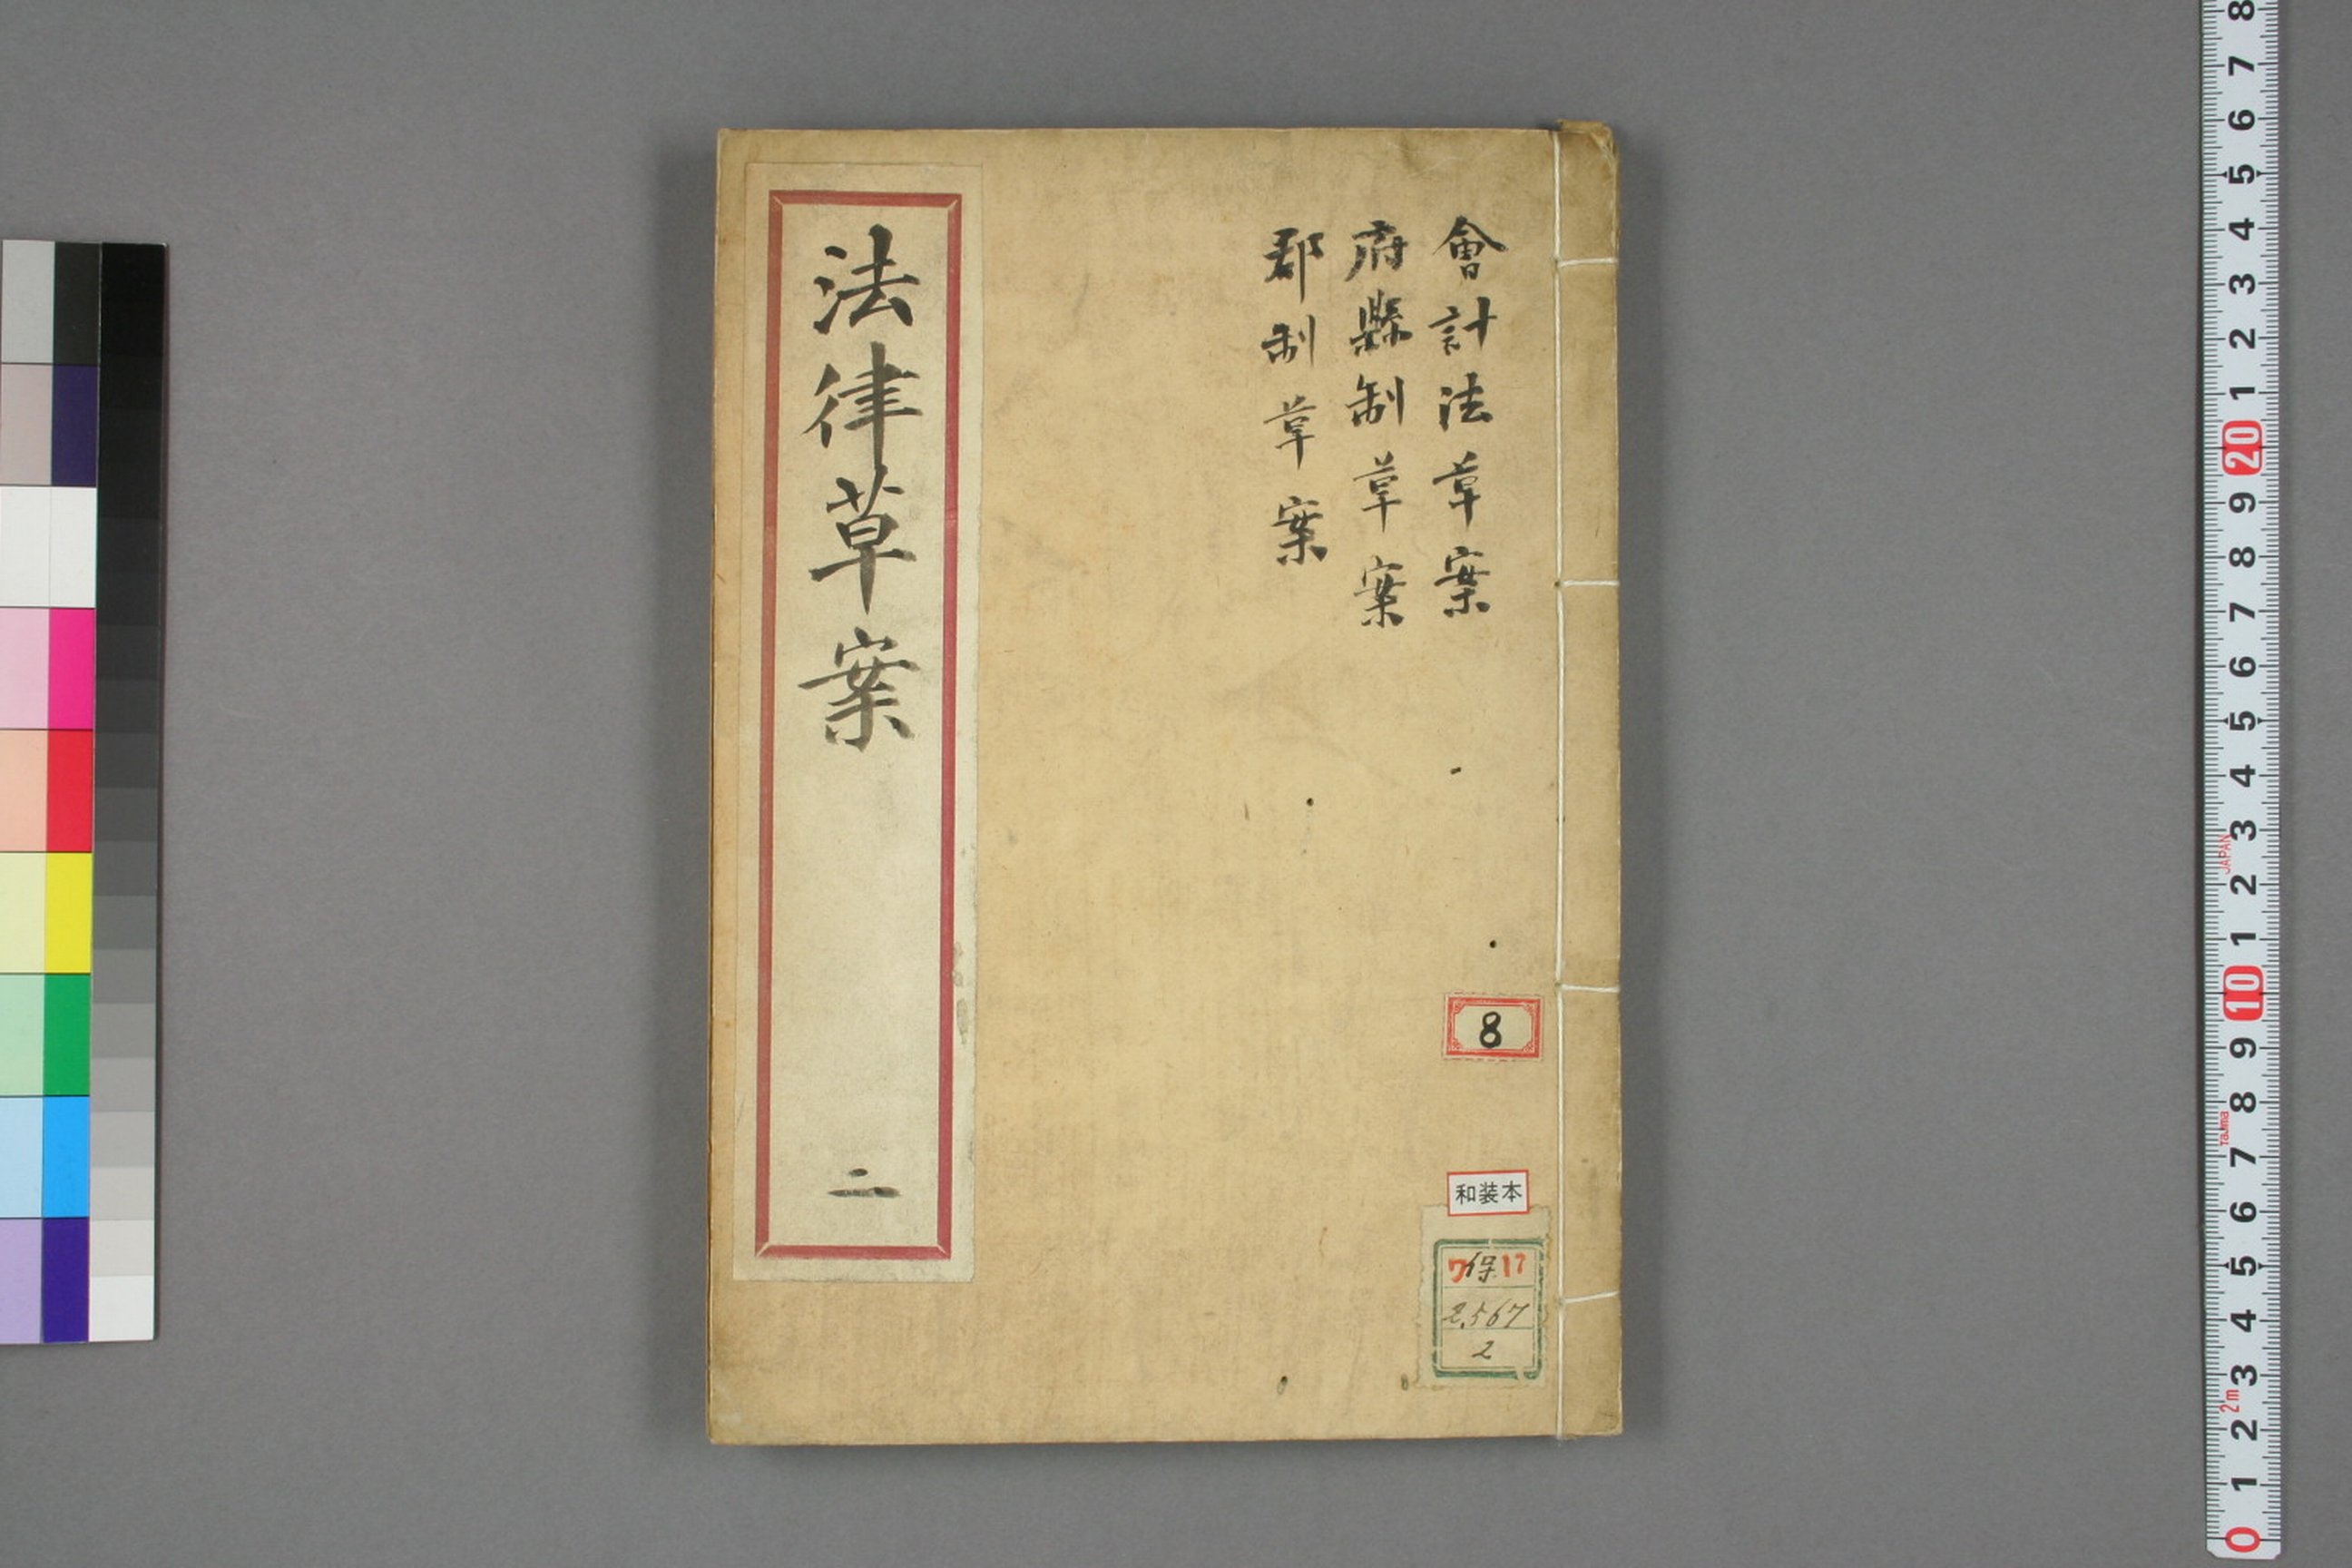 會計法草案
府縣制草案
郡制草案
法律草案 二
8
和装本
ワ保17
2,567
2
8
7
6
5
4
3
2
1
20
9
8
7
6
5
4
3
JAPAN
2
1
10
9
8
Tajima
7
6
5
4
3
2m
2
1
0